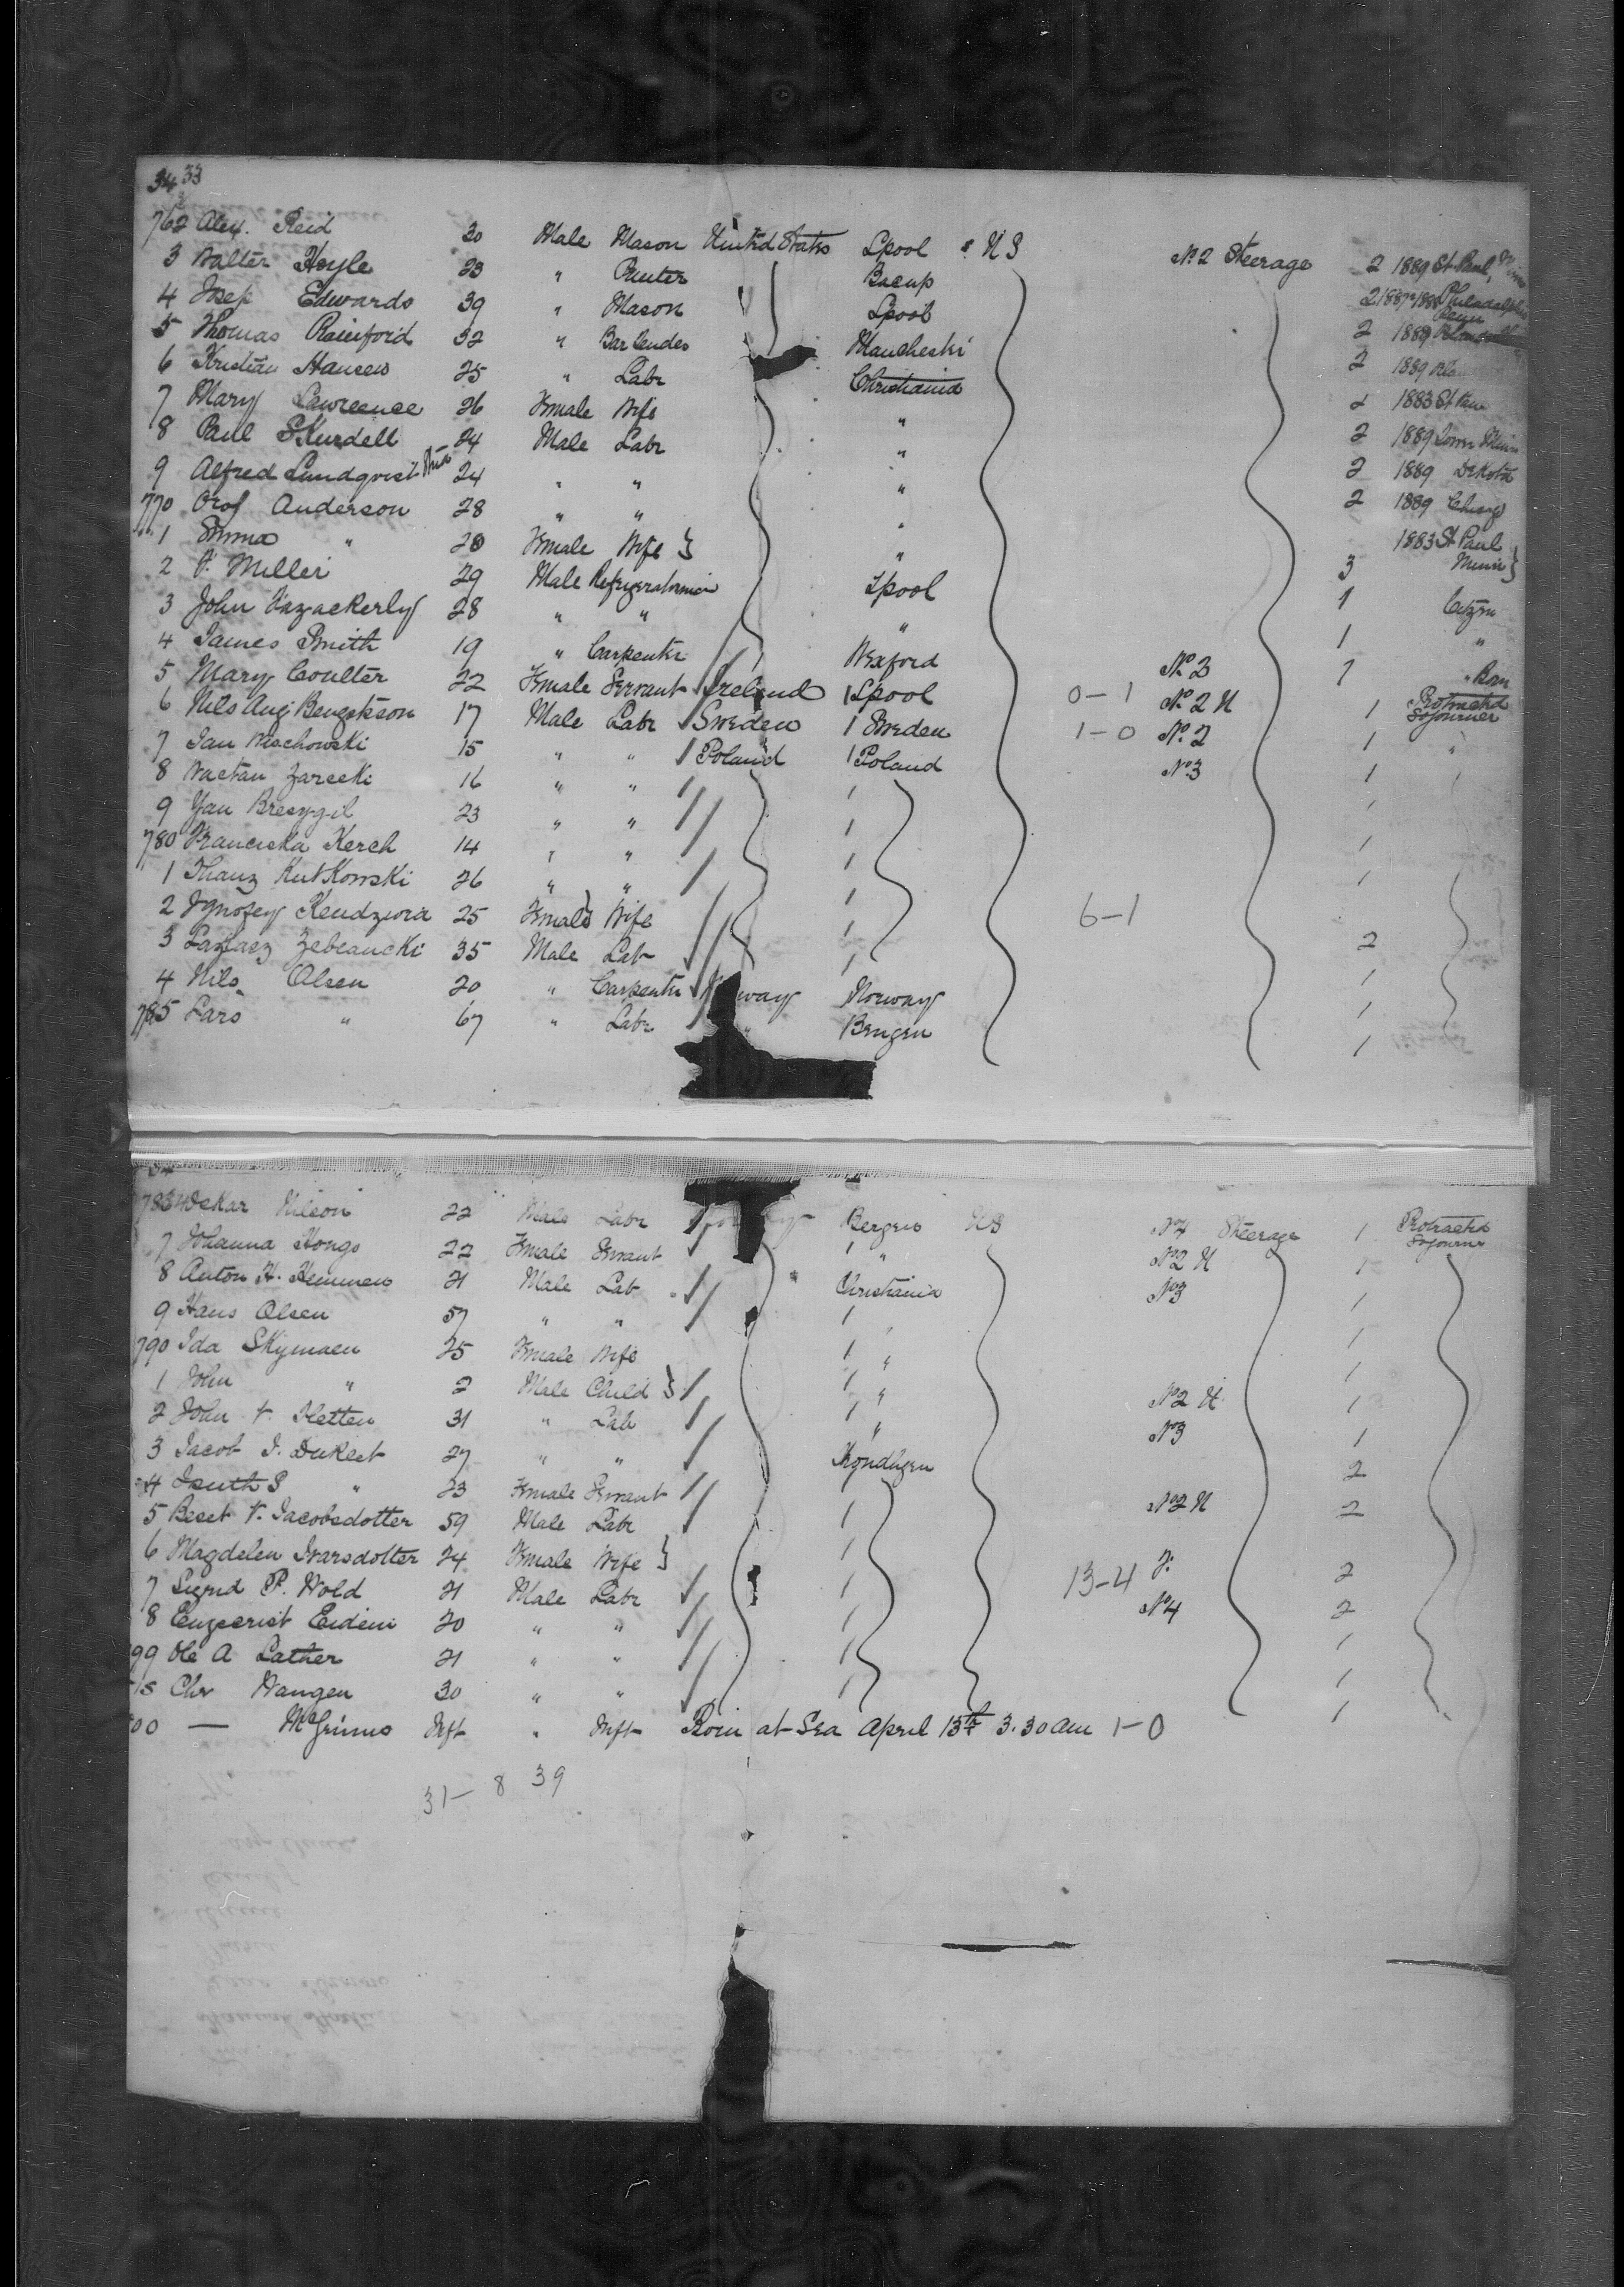 34 33
762 Alex. Reid 30 Male Mason United States Lpool U S No 2 Steerage 2 1889 St Paul, Minn
3 Walter Hoyle 23 " Painter Bacup 2 1887-1888 Philadelphia Penn
4 Josep Edwards 39 " Mason Lpool 2 1889
5 Thomas Rainford 32 " Bar Tender 2 1889
6 Kristian Hansen 25 " Labr Christiania 2 1883 St Paul
7 Mary Lawreence 26 Female Wife " 2 1889 Minn
8 Paul Skurdell 24 Male Labr " 2 1889 Dekota
9 Alfred Lundqvist 24 " " " 2 1889 Chicago
770 Olof Anderson 28 " " " 1883 St Paul
1 Emma " 28 Female Wife } " 3 Minn }
2 P. Miller 29 Male Refrigeratorman Lpool 1 Citizen
3 John Fazackerly 28 " " " 1 "
4 James Smith 19 " Carpentr Wexford No 3 1 " Born
5 Mary Coulter 22 Female Servant Ireland 1 Lpool 0-1 No 2 U 1 Protracted Sojourner
6 Nils Aug Bengtsson 17 Male Labr Sweden 1 Sweden 1-0 No 2 1 "
7 Jan Wischowski 15 " " Poland 1 Poland No 3 1
8 Wactau Zarecki 16 " " 1
9 Yan Bresygil 23 " " 1
780 Franciska Kerch 14 " " 1
1 Thanz Kutkowski 26 " " 1
2 Kendzwra 25 Female Wife 1 6-1
3 Zebrancki 35 Male Labr 1 2
4 Nils Olsen 20 " Carpentr Norway 1
785 Lars " 67 " Labr Bergen 1
34
786 Oskar Nilson 22 Male Labr Bergen U S No 4 Steerage 1 Protracted Sojourner
7 Johanna Hongo 22 Female Servant 1 " No 2 U 1
8 Anton H. Hemmen 21 Male Lab Christiania No 3 1
9 Hans Olsen 57 " " 1 " 1
790 Ida Skymoen 25 Female Wife 1 " 1
1 John " 2 Male Child } 1 " No 2 U 1
2 John T. Sletten 31 " Lab 1 " No 3 1
3 Jacob J. 27 " " 2
4 " 23 Female Servant No 2 U 2
5 Jacobsdotter 59 Male Labr 1
6 Magdelen Ivarsdotter 24 Female Wife } 1 13-4 2
7 Sigrid P. Wold 21 Male Labr 1 No 4 2
8 Eidem 20 " " 1 1
99 Ole A Lather 21 " " 1 1
Chr Haugen 30 " " 1 1
00 — McGrinus Inft " Inft Born at Sea April 13th 3.30 am 1-0
31- 8 39